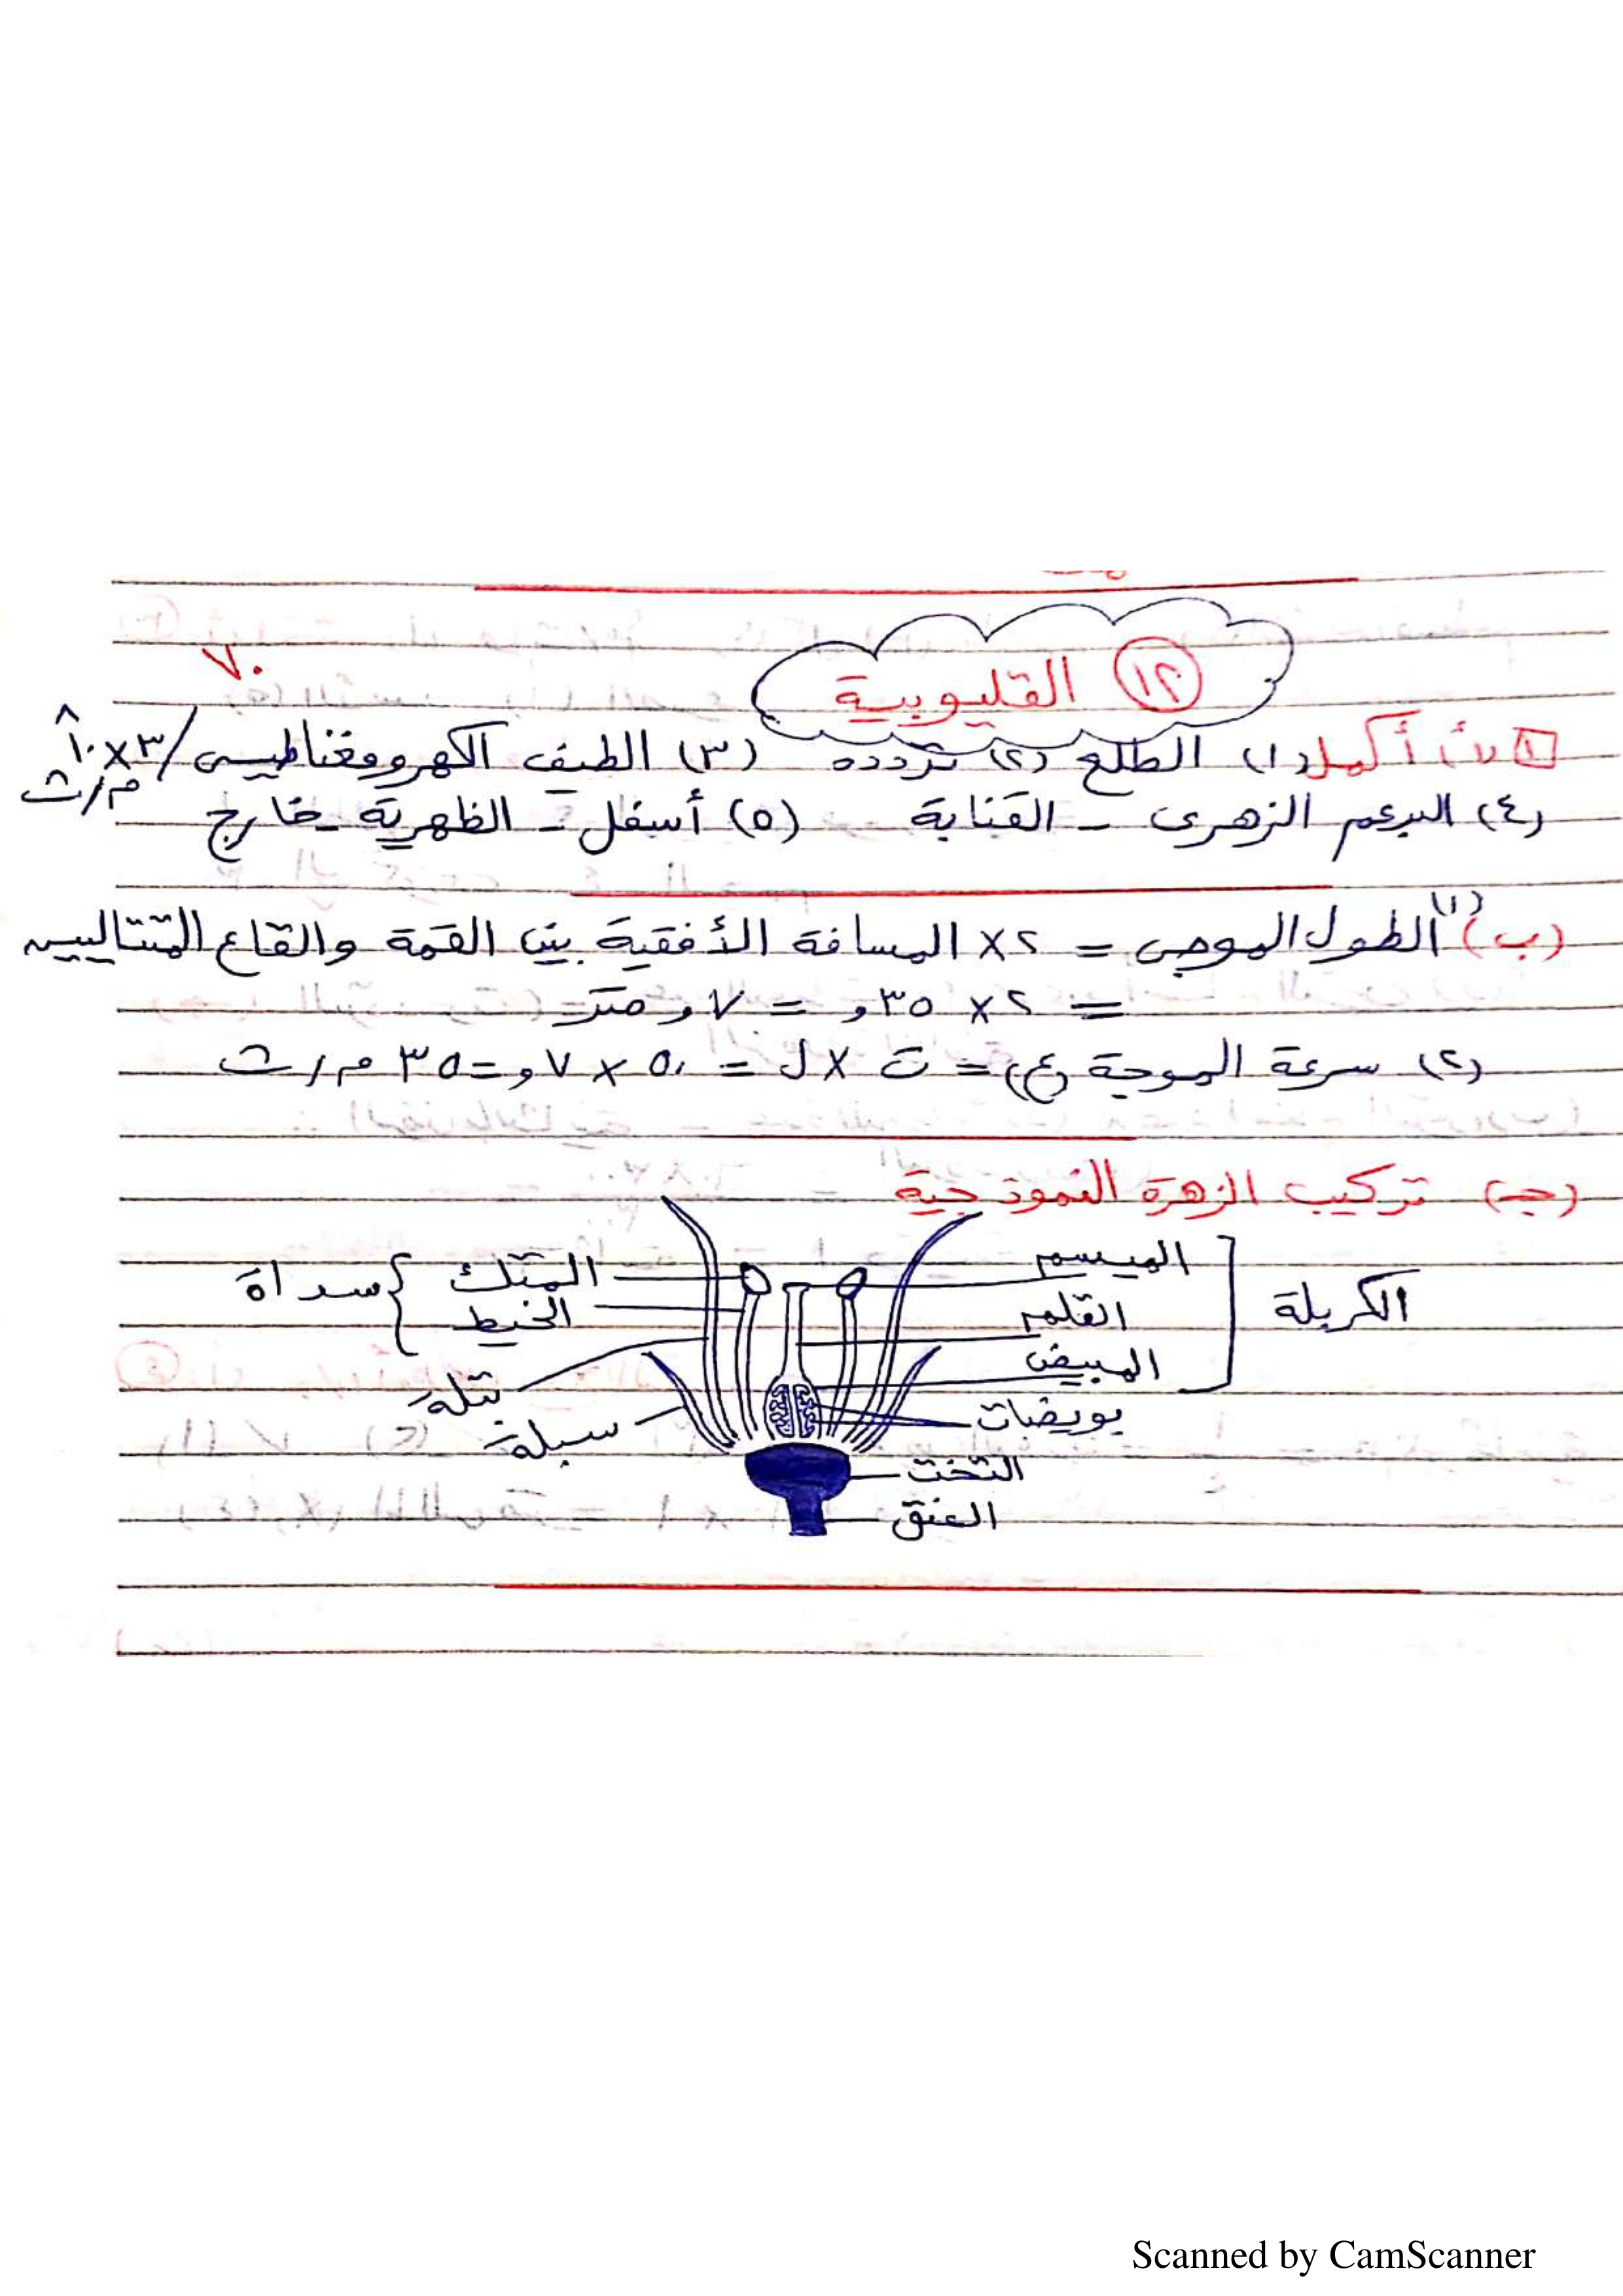 ٧٠
١٢ القليوبية
١ (أ) أكمل (١) الطلع (٢) تردده (٣) الطيف الكهرومغناطيسى / ٣×١٠^٨ م/ث
(٤) البرعم الزهرى - القنابة (٥) أسفل - الظهرية - خارج
(ب) (١) الطول الموجى = ٢× المسافة الأفقية بين القمة والقاع المتتاليين
= ٢ × ٣٥و = ٧و متر
(٢) سرعة الموجة (ع) = ت × ل = ٥٠ × ٧و = ٣٥ م/ث
(جـ) تركيب الزهرة النموذجية
الكربلة
الميسم
القلم
المبيض
بويضات
التخت
العنق
المتك
الخيط
سداة
بتلة
سبلة
Scanned by CamScanner